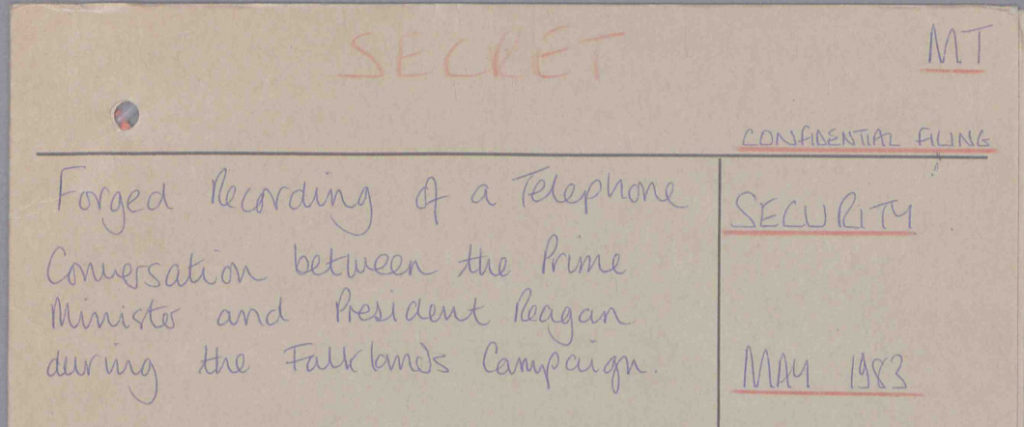 SECRET
MT
CONFIDENTIAL FILING
Forged Recording of a Telephone
Conversation between the Prime
Minister and President Reagan
during the Falklands Campaign.
SECURITY
MAY 1983